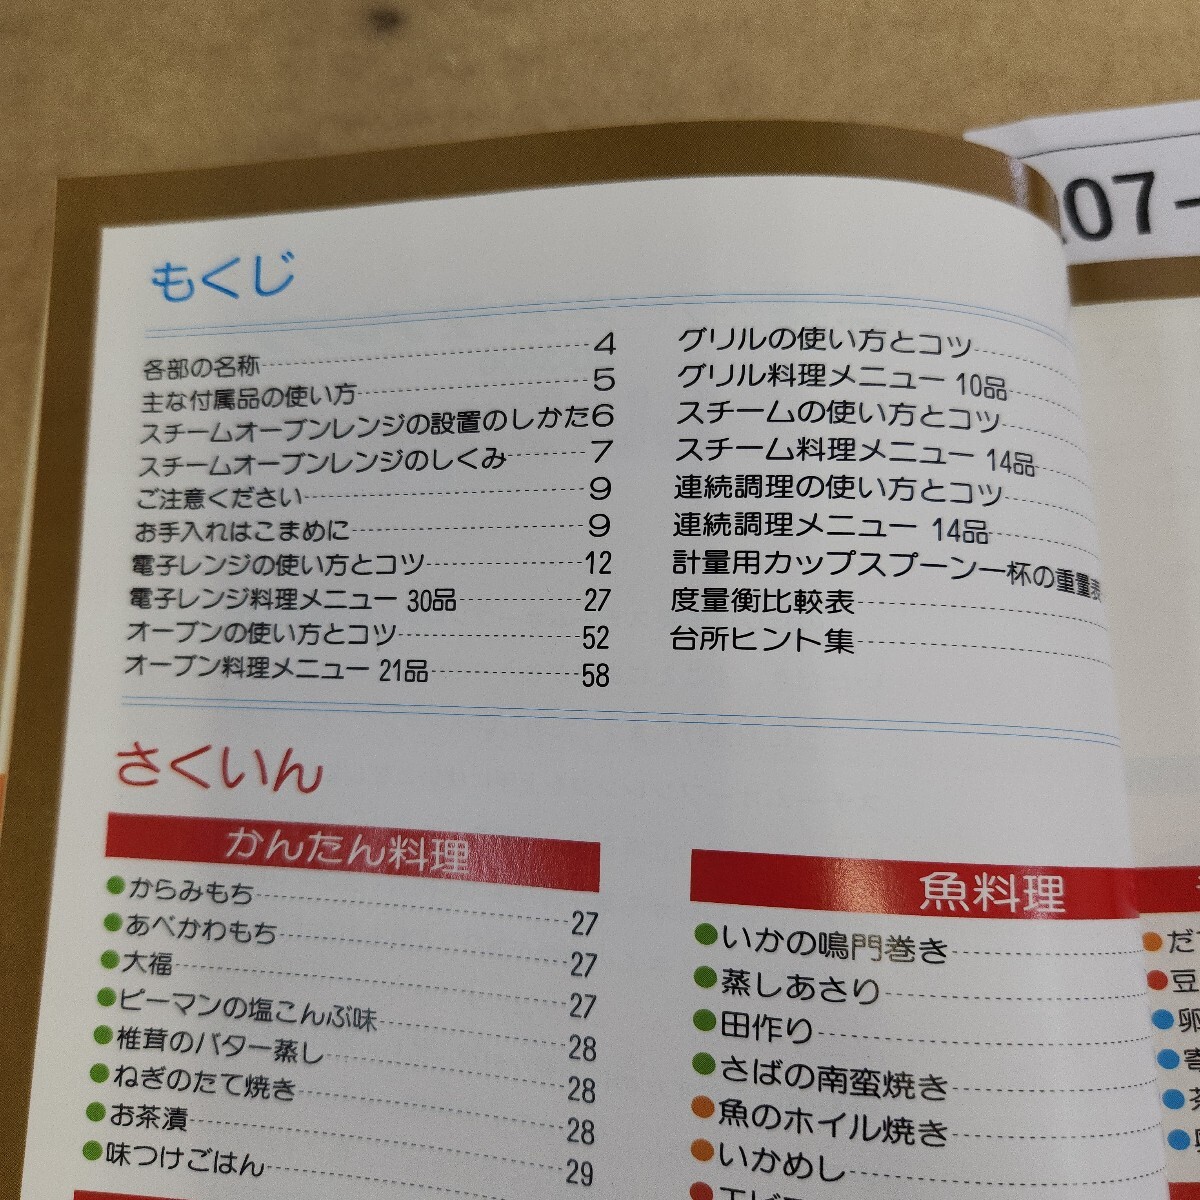 07-
もくじ
各部の名称 4
主な付属品の使い方 5
スチームオーブンレンジの設置のしかた 6
スチームオーブンレンジのしくみ 7
ご注意ください 9
お手入れはこまめに 9
電子レンジの使い方とコツ 12
電子レンジ料理メニュー 30品 27
オーブンの使い方とコツ 52
オーブン料理メニュー 21品 58
グリルの使い方とコツ
グリル料理メニュー 10品
スチームの使い方とコツ
スチーム料理メニュー 14品
連続調理の使い方とコツ
連続調理メニュー 14品
計量用カップスプーン一杯の重量表
度量衡比較表
台所ヒント集
さくいん
かんたん料理
からみもち 27
あべかわもち 27
大福 27
ピーマンの塩こんぶ味 28
椎茸のバター蒸し 28
ねぎのたて焼き 28
お茶漬 28
味つけごはん 29
魚料理
いかの鳴門巻き
蒸しあさり
田作り
さばの南蛮焼き
魚のホイル焼き
いかめし
だ
豆
卵
寄
茶